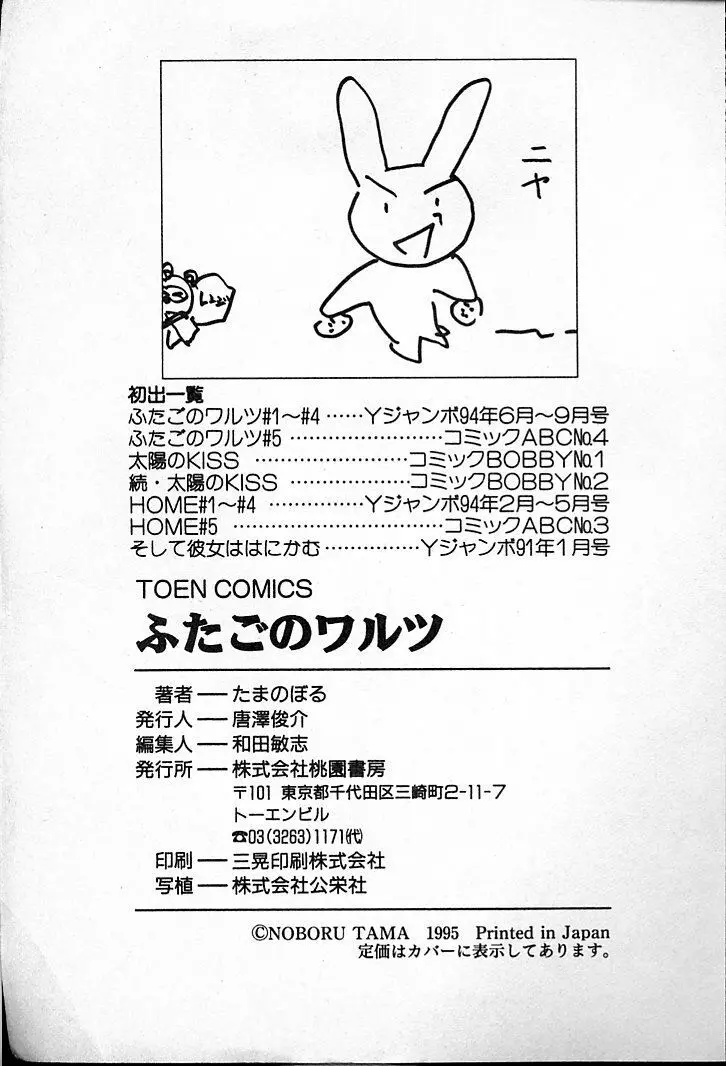 ニヤ
初出一覧
ふたごのワルツ#1〜#4 ……Yジャンボ94年6月〜9月号
ふたごのワルツ#5 ……………………コミックABC№4
太陽のKISS ………………コミックBOBBY№1
続・太陽のKISS ………………コミックBOBBY№2
HOME#1〜#4 ……………Yジャンボ94年2月〜5月号
HOME#5 ……………………………コミックABC№3
そして彼女ははにかむ……………Yジャンボ91年1月号
TOEN COMICS
ふたごのワルツ
著者──たまのぼる
発行人──唐澤俊介
編集人──和田敏志
発行所──株式会社桃園書房
〒101 東京都千代田区三崎町2-11-7
トーエンビル
☎03(3263)1171㈹
印刷──三晃印刷株式会社
写植──株式会社公栄社
©NOBORU TAMA 1995 Printed in Japan
定価はカバーに表示してあります。